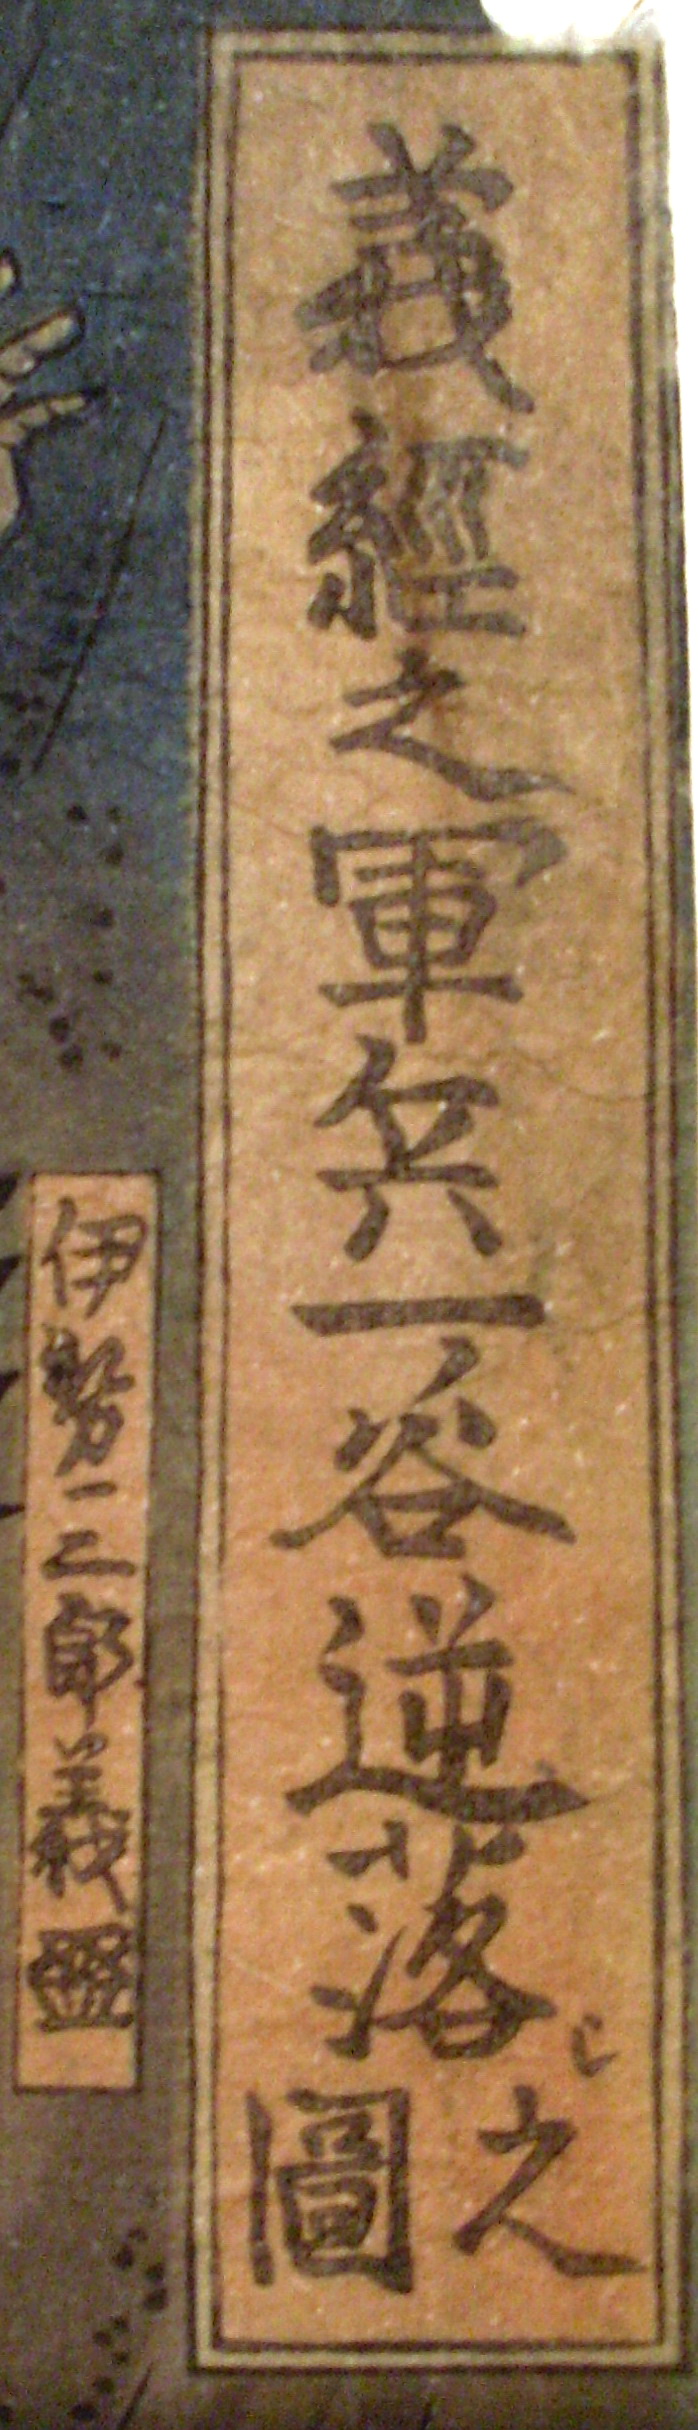 義經之軍兵一谷逆落し之圖
伊勢三郎義盛